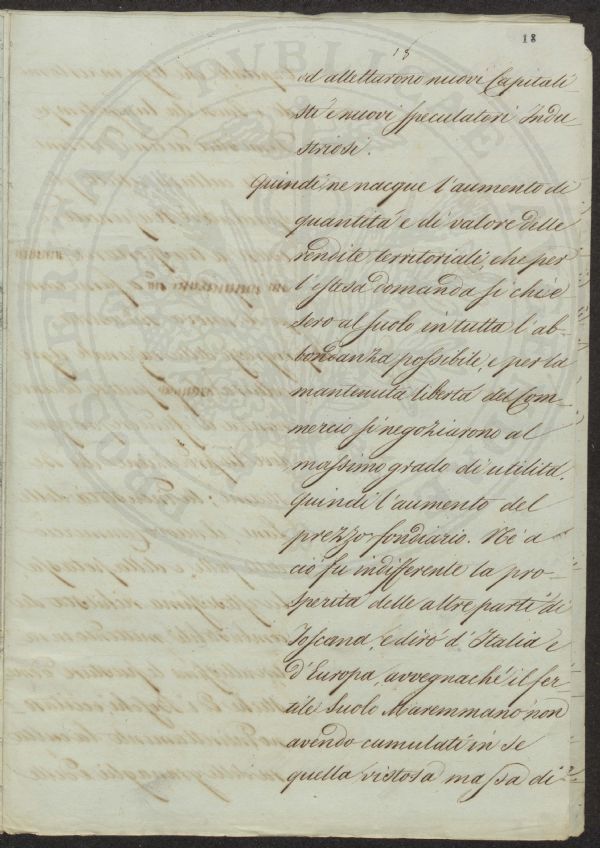 18
18
ed allettarono nuovi Capitali
sti e nuovi speculatori Indu
striosi.
Quindi ne nacque l'aumento di
quantità e di valore delle
rendite territoriali, che per
l'estesa domanda si chie
sero al suolo in tutta l'ab-
bondanza possibile, e per la
mantenuta libertà del Com-
mercio si negoziarono al
massimo grado di utilità.
Quindi l'aumento del
prezzo fondiario. Nè a
ciò fu indifferente la pro-
sperità delle altre parti di
Toscana, e dirò d'Italia e
d'Europa, avvegnachè il fer-
tile Suolo Maremmano non
avendo cumulati in se
quella vistosa massa di